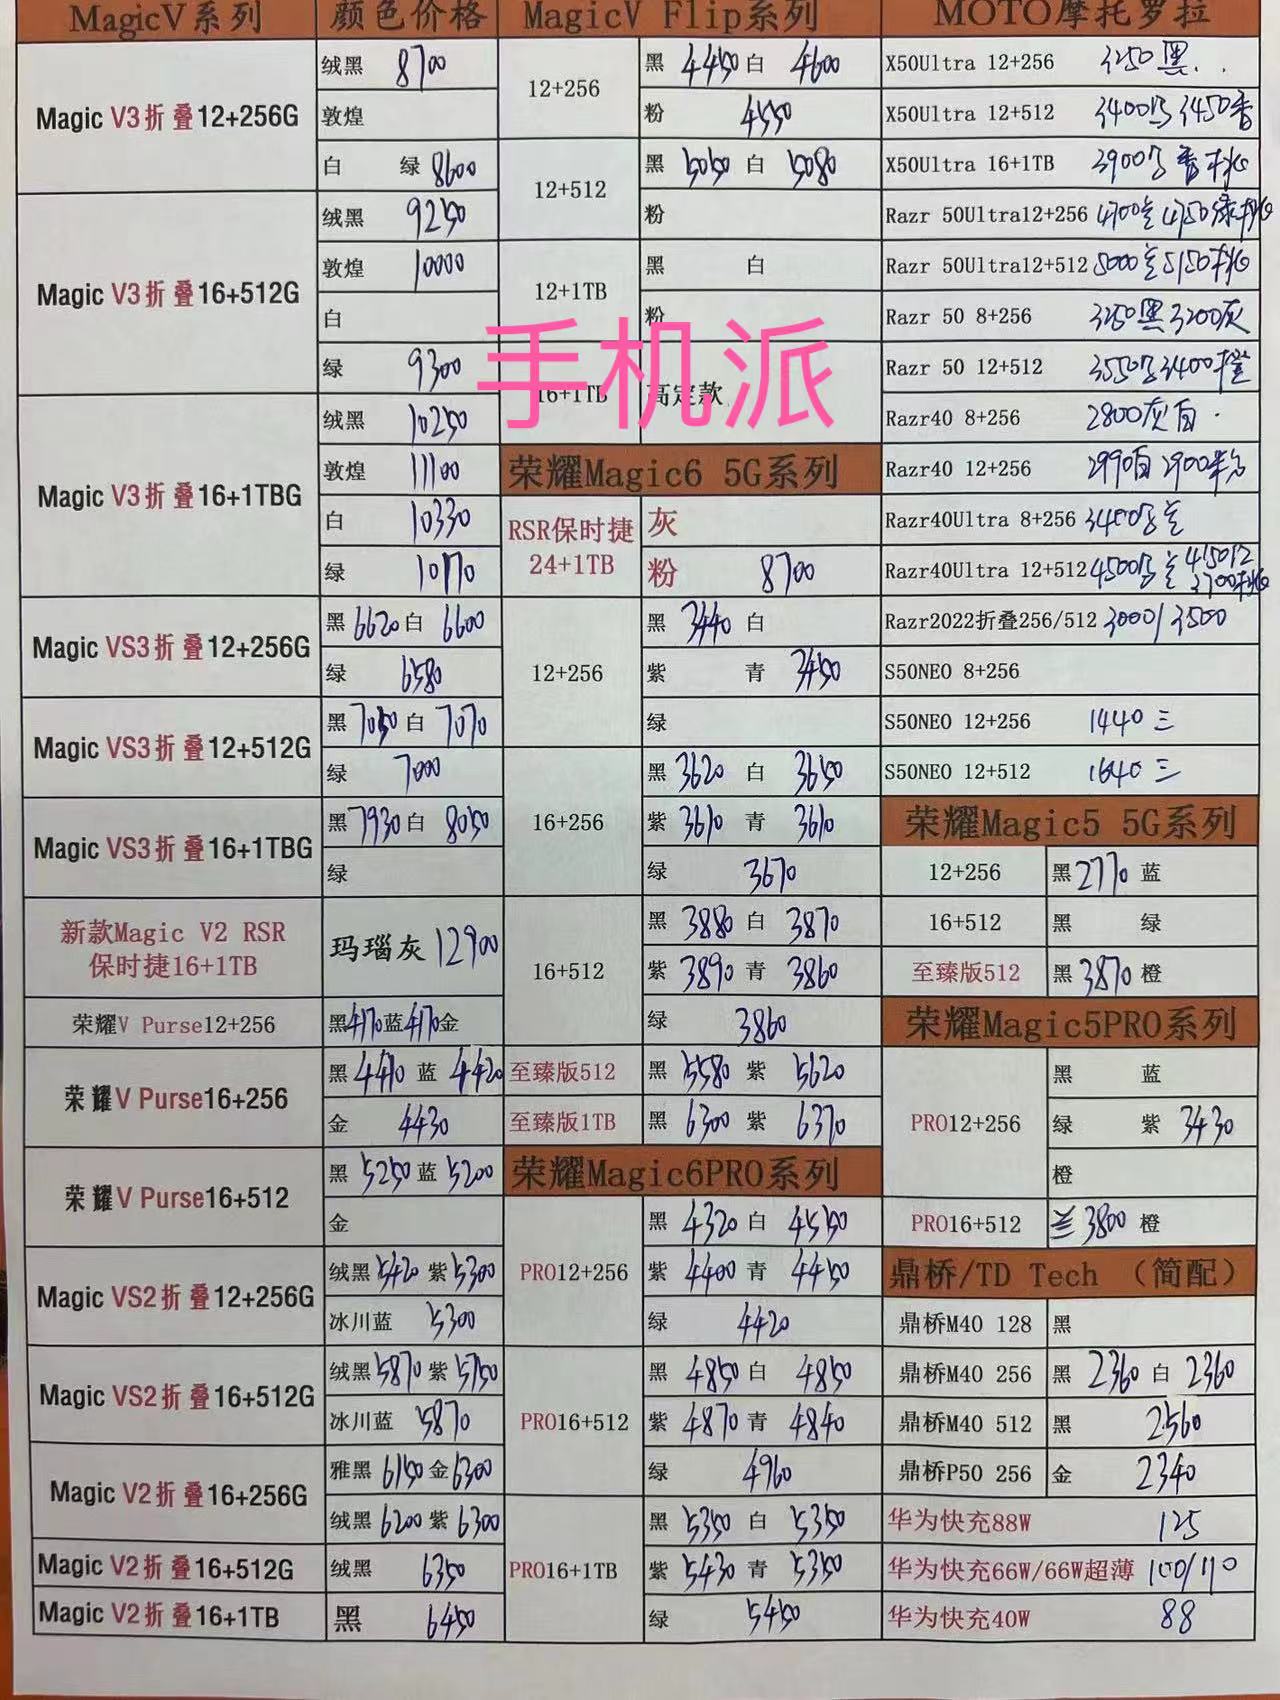 MagicV系列 颜色价格
Magic V3折叠12+256G 绒黑 8700
敦煌
白 绿 8600
Magic V3折叠16+512G 绒黑 9250
敦煌 10000
白
绿 9300
Magic V3折叠16+1TBG 绒黑 10250
敦煌 11100
白 10330
绿 10170
Magic VS3折叠12+256G 黑 6620 白 6600
绿 6580
Magic VS3折叠12+512G 黑 7050 白 7070
绿 7000
Magic VS3折叠16+1TBG 黑 7930 白 8050
绿
新款Magic V2 RSR
保时捷16+1TB
玛瑙灰 12900
荣耀V Purse12+256 黑 4170 蓝 4170 金
荣耀V Purse16+256 黑 4410 蓝 4420
金 4430
荣耀V Purse16+512 黑 5250 蓝 5200
金
Magic VS2折叠12+256G 绒黑 5420 紫 5300
冰川蓝 5300
Magic VS2折叠16+512G 绒黑 5870 紫 5750
冰川蓝 5870
Magic V2折叠16+256G 雅黑 6150 金 6300
绒黑 6200 紫 6300
Magic V2折叠16+512G 绒黑 6350
Magic V2折叠16+1TB 黑 6450
MagicV Flip系列
12+256 黑 4450 白 4600
粉 4550
12+512 黑 5050 白 5080
粉
12+1TB 黑 白
粉
手机派
16+1TB 高定款
荣耀Magic6 5G系列
RSR保时捷
24+1TB
灰
粉 8700
12+256 黑 3440 白
紫 青 3450
绿
16+256 黑 3620 白 3650
紫 3610 青 3610
绿 3670
16+512 黑 3880 白 3870
紫 3890 青 3860
绿 3860
至臻版512 黑 5580 紫 5620
至臻版1TB 黑 6300 紫 6370
荣耀Magic6PRO系列
PRO12+256 黑 4320 白 4550
紫 4400 青 4450
绿 4420
PRO16+512 黑 4850 白 4850
紫 4870 青 4840
绿 4960
PRO16+1TB 黑 5350 白 5350
紫 5430 青 5350
绿 5450
MOTO摩托罗拉
X50Ultra 12+256 3250黑
X50Ultra 12+512 3400 3450
X50Ultra 16+1TB 3900
Razr 50Ultra12+256 4700 4750
Razr 50Ultra12+512 5000 5150
Razr 50 8+256 3250黑 3200灰
Razr 50 12+512 3550 3400橙
Razr40 8+256 2800灰
Razr40 12+256 2990 2900
Razr40Ultra 8+256 3400
Razr40Ultra 12+512 4500 4150 3700
Razr2022折叠256/512 3000/3500
S50NEO 8+256
S50NEO 12+256 1440 三
S50NEO 12+512 1640 三
荣耀Magic5 5G系列
12+256 黑 2770 蓝
16+512 黑 绿
至臻版512 黑 3870 橙
荣耀Magic5PRO系列
PRO12+256 黑 蓝
绿 紫 3430
橙
PRO16+512 3800 橙
鼎桥/TD Tech （简配）
鼎桥M40 128 黑
鼎桥M40 256 黑 2360 白 2360
鼎桥M40 512 黑 2560
鼎桥P50 256 金 2340
华为快充88W 125
华为快充66W/66W超薄 100/110
华为快充40W 88